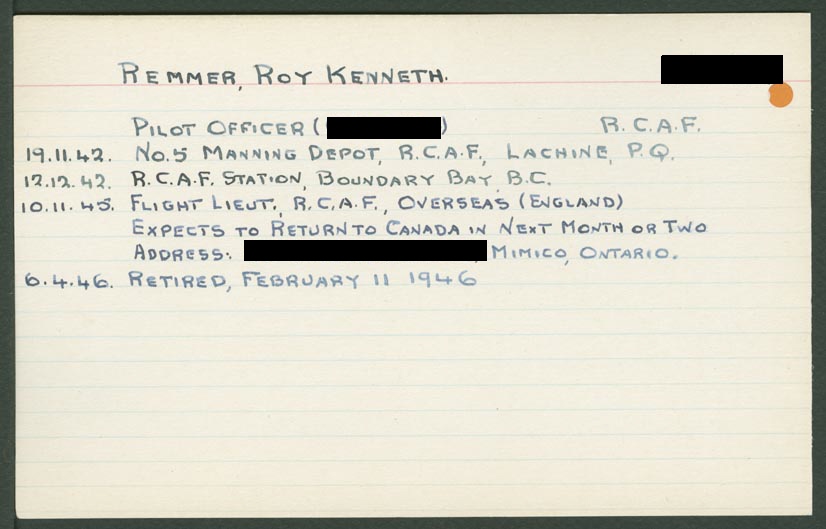 REMMER, ROY KENNETH.
PILOT OFFICER ( ) R.C.A.F.
19.11.42. NO.5 MANNING DEPOT, R.C.A.F., LACHINE, P.Q.
12.12.42. R.C.A.F. STATION, BOUNDARY BAY, B.C.
10.11.45. FLIGHT LIEUT., R.C.A.F., OVERSEAS (ENGLAND)
EXPECTS TO RETURN TO CANADA IN NEXT MONTH OR TWO
ADDRESS: , MIMICO, ONTARIO.
6.4.46. RETIRED, FEBRUARY 11 1946